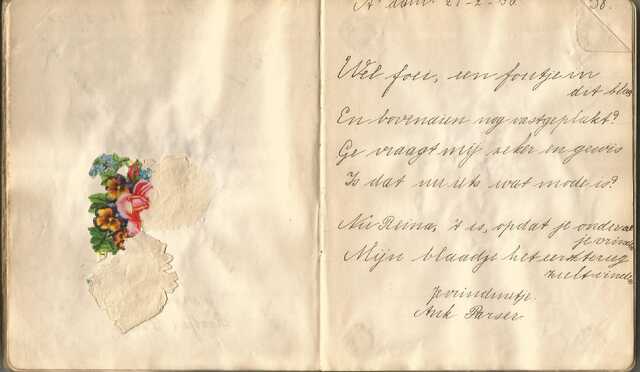 A'dam 21-2-'36. 38.
Wel foei, een foutje in
dit blad
En bovendien nog vastgeplakt?
Ge vraagt mij zeker en gewis
Is dat nu iets wat mode is?
Nu Reina, 't is, opdat je onder al
je vrinden
Mijn blaadje het eerst terug
zult vinden
Je vriendinnetje.
Ank Parser